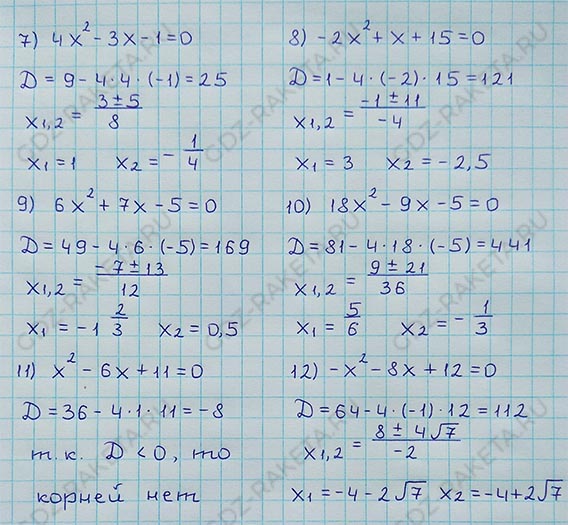 7) 4x² - 3x - 1 = 0
D = 9 - 4·4·(-1) = 25
x₁,₂ = (3 ± 5)/8
x₁ = 1 x₂ = -1/4
8) -2x² + x + 15 = 0
D = 1 - 4·(-2)·15 = 121
x₁,₂ = (-1 ± 11)/-4
x₁ = 3 x₂ = -2,5
9) 6x² + 7x - 5 = 0
D = 49 - 4·6·(-5) = 169
x₁,₂ = (-7 ± 13)/12
x₁ = -1 2/3 x₂ = 0,5
10) 18x² - 9x - 5 = 0
D = 81 - 4·18·(-5) = 441
x₁,₂ = (9 ± 21)/36
x₁ = 5/6 x₂ = -1/3
11) x² - 6x + 11 = 0
D = 36 - 4·1·11 = -8
т.к. D < 0, то
корней нет
12) -x² - 8x + 12 = 0
D = 64 - 4·(-1)·12 = 112
x₁,₂ = (8 ± 4√7)/-2
x₁ = -4 - 2√7 x₂ = -4 + 2√7
GDZ-RAKETA.RU